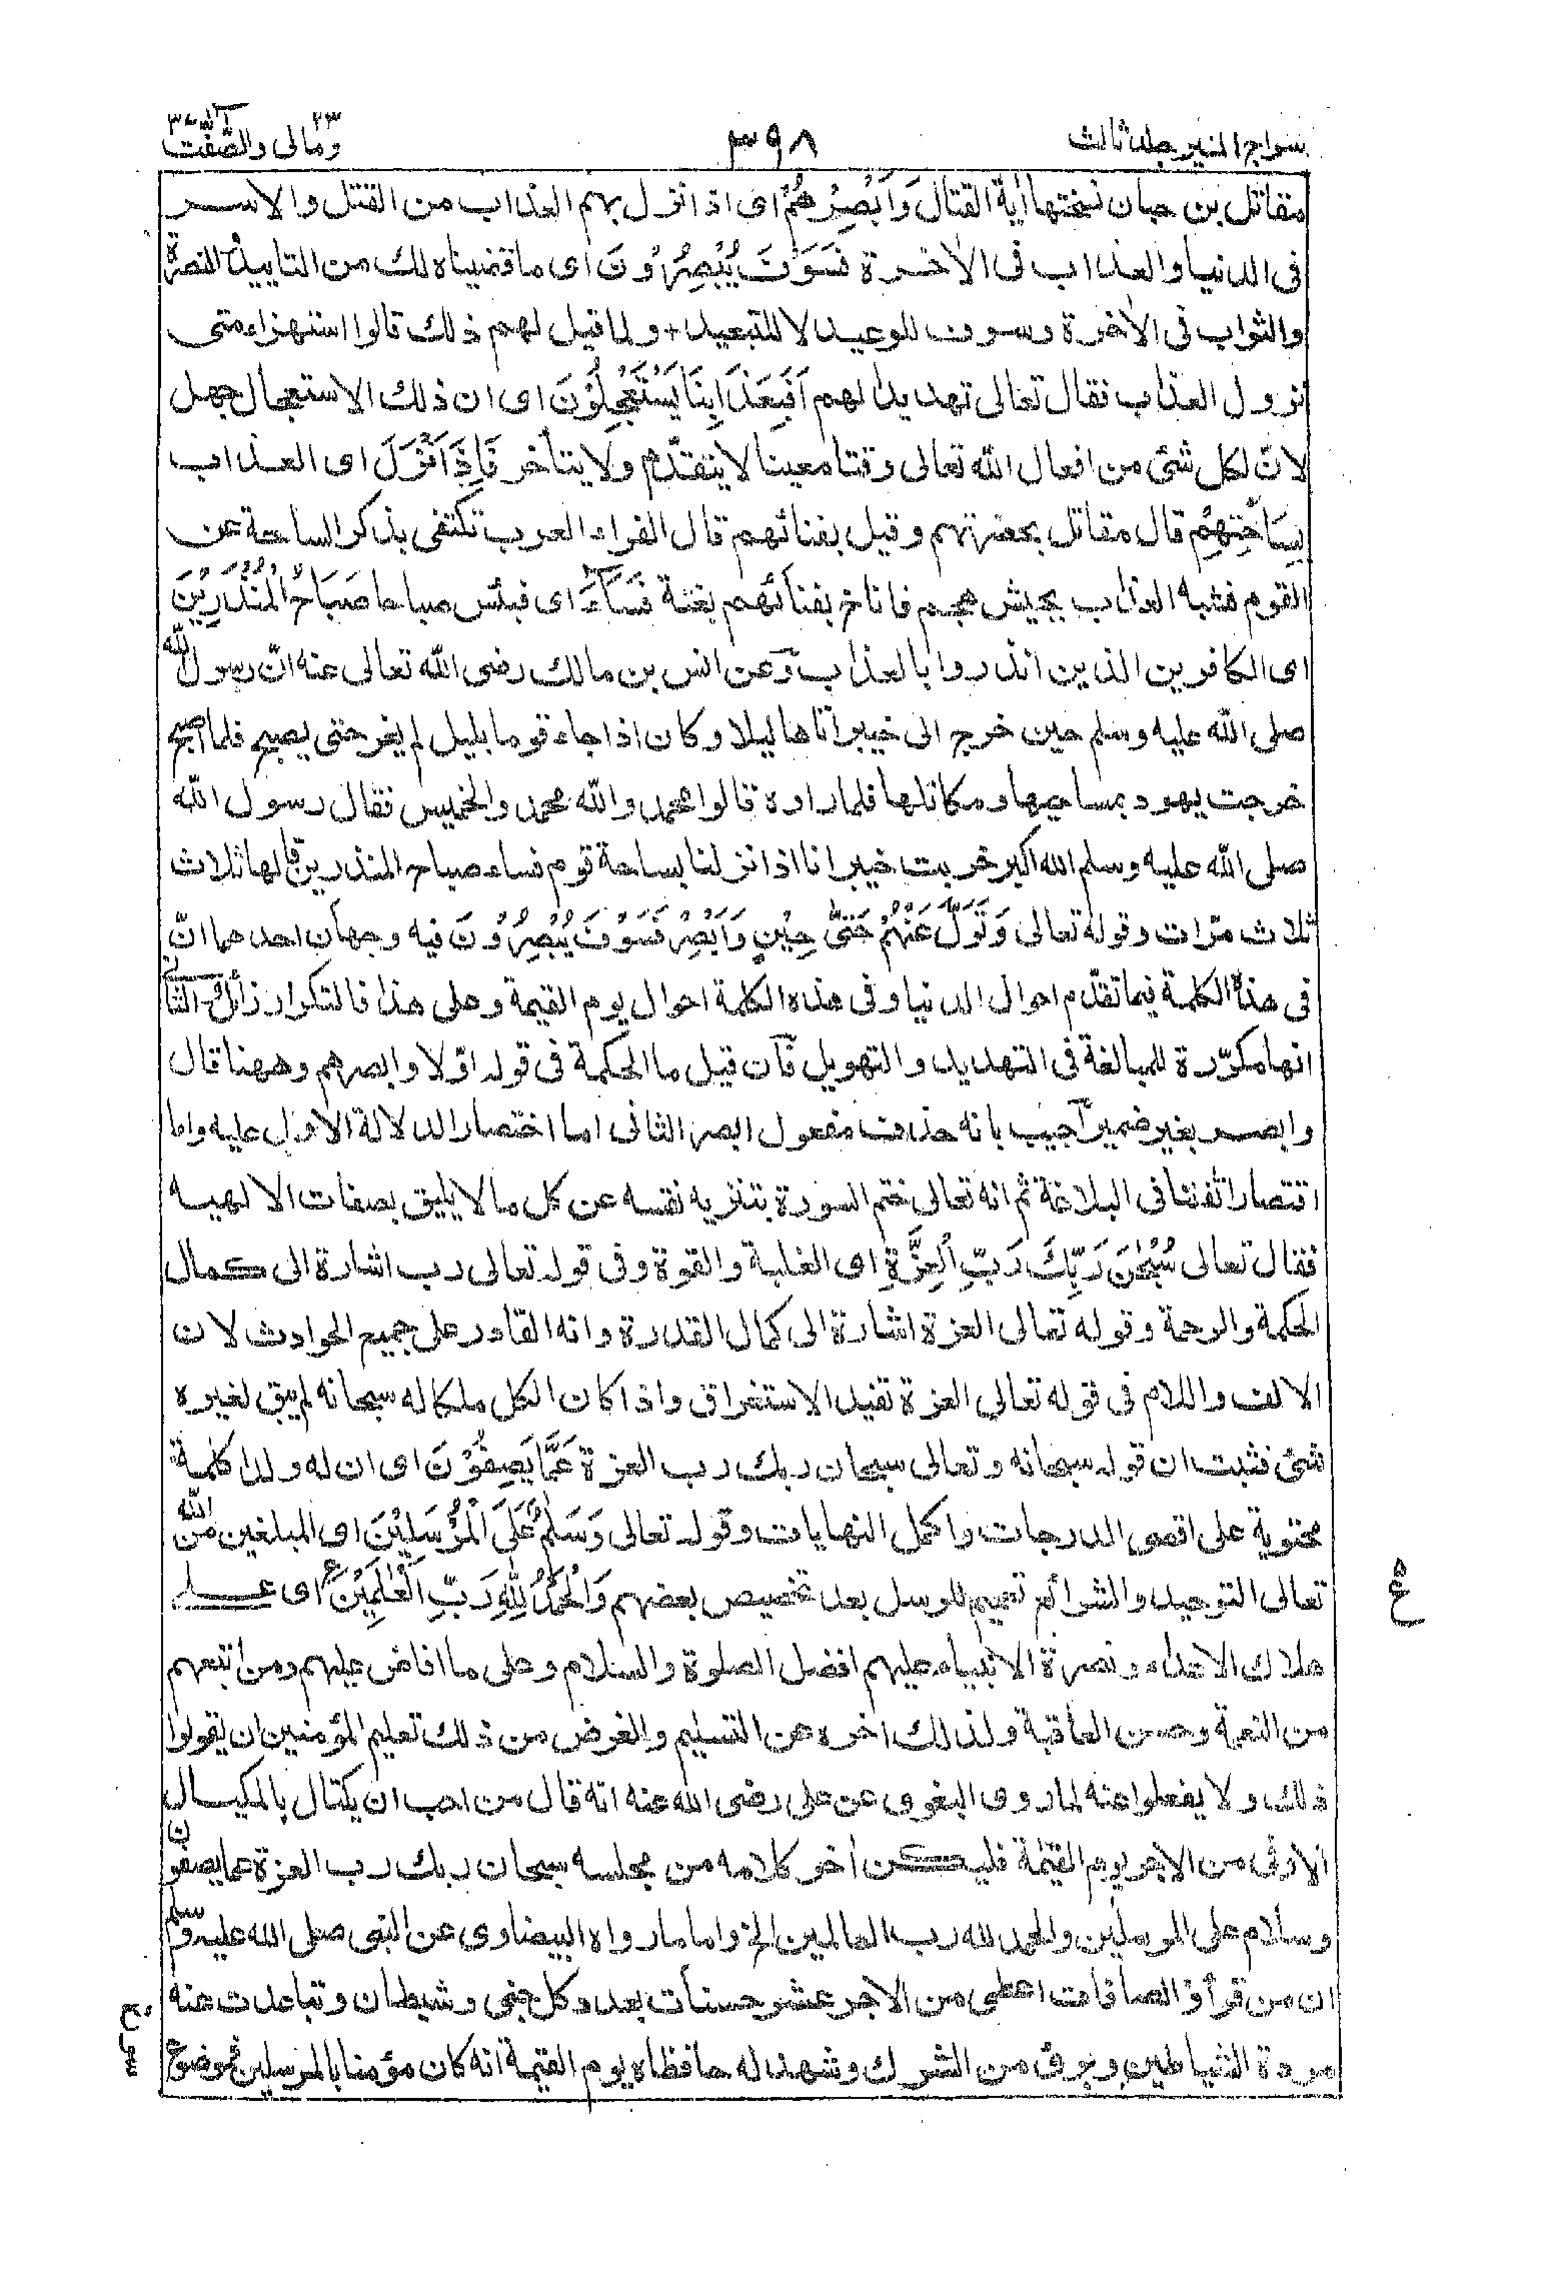 سراج المنير جلد ثالث
٣٩٨
ومالى ٢٣ والصّٰفّٰت ٣٧
مقاتل بن حبان نسختها اٰية القتال وَاَبْصِرْهُمْ اى اذا نزل بهم العذاب من القتل والاسر
فى الدنيا والعذاب فى الاٰخرة فَسَوْفَ يُبْصِرُوْنَ اى ما قضيناه لك من التاييد والنصرة
والثواب فى الاٰخرة وسوف للوعيد لا للتبعيد + ولما قيل لهم ذلك قالوا استهزاء متى
نزول العذاب فقال تعالى تهديدا لهم اَفَبِعَذَابِنَا يَسْتَعْجِلُوْنَ اى ان ذلك الاستعجال جهل
لانّ لكل شئ من افعال الله تعالى وقتا معينا لا يتقدّم ولا يتأخر فَاِذَا نَزَلَ اى العذاب
بِسَاحَتِهِمْ قال مقاتل بحضرتهم وقيل بفنائهم قال الفراء العرب تكتفى بذكر الساحة عن
القوم فشبه العذاب بجيش هجم فاناخ بفنائهم بغتة فَسَآءَ اى فبئس صباحا صَبَاحُ الْمُنْذَرِيْنَ
اى الكافرين الذين انذروا بالعذاب وعن انس بن مالك رضى الله تعالى عنه انّ رسول الله
صلى الله عليه وسلم حين خرج الى خيبر اتاها ليلا وكان اذا جاء قوما بليل لم يغر حتى يصبح فلما اصبح
خرجت يهود بمساحيها ومكاتلها فلما راوه قالوا محمد والله محمد والخميس فقال رسول الله
صلى الله عليه وسلم الله اكبر خربت خيبر انا اذا نزلنا بساحة قوم فساء صباح المنذرين قالها ثلاث
ثلاث مرّات وقوله تعالى وَتَوَلَّ عَنْهُمْ حَتّٰى حِيْنٍ وَاَبْصِرْ فَسَوْفَ يُبْصِرُوْنَ فيه وجهان احدهما انّ
فى هذه الكلمة فيما تقدّم احوال الدنيا وفى هذه الكلمة احوال يوم القيٰمة وعلى هذا فالتكرار زائل والثانى
انها مكرّرة للمبالغة فى التهديد والتهويل فان قيل ما الحكمة فى قوله اوّلا وابصرهم وههنا قال
وابصر بغير ضمير اجيب بانه حذف مفعول ابصر الثانى اما اختصارا لدلالة الاول عليه واما
اقتصارا تفننا فى البلاغة ثم انه تعالى ختم السورة بتنزيه نفسه عن كل ما لا يليق بصفات الالهيه
فقال تعالى سُبْحٰنَ رَبِّكَ رَبِّ الْعِزَّةِ اى الغلبة والقوة وفى قوله تعالى رب اشارة الى كمال
الحكمة والرحمة وقوله تعالى العزة اشارة الى كمال القدرة وانه القادر على جميع الحوادث لان
الالف واللام فى قوله تعالى العزة تفيد الاستغراق واذا كان الكل ملكا له سبحانه لم يبق لغيره
شئ فثبت ان قوله سبحانه وتعالى سبحان ربك رب العزة عَمَّا يَصِفُوْنَ اى ان له ولدا كلمة
محتوية على اقصى الدرجات واكمل النهايات وقوله تعالى وَسَلٰمٌ عَلَى الْمُرْسَلِيْنَ اى المبلغين من الله
تعالى التوحيد والشرائع تعميم للرسل بعد تخصيص بعضهم وَالْحَمْدُ لِلّٰهِ رَبِّ الْعٰلَمِيْنَ ع اى على
هلاك الاعداء ونصرة الانبياء عليهم افضل الصلوة والسلام وعلى ما افاض عليهم ومن اتبعهم
من النعمة وحسن العاقبة ولذلك اخره عن التسليم والغرض من ذلك تعليم المؤمنين ان يقولوا
ذلك ولا يفعلوا عنه لما روى البغوى عن على رضى الله عنه انه قال من احب ان يكتال بالمكيال
الاوفى من الاجر يوم القيٰمة فليكن اٰخر كلامه من مجلسه سبحان ربك رب العزة عما يصفون
وسلام على المرسلين والحمد لله رب العالمين الخ واما ما رواه البيضاوى عن النبى صلى الله عليه وسلم
ان من قرأ والصافات اعطى من الاجر عشر حسنات بعدد كل جنى وشيطان وتباعدت عنه
مردة الشياطين وبرئ من الشرك وشهد له حافظاه يوم القيٰمة انه كان مؤمنا بالمرسلين فموضوع